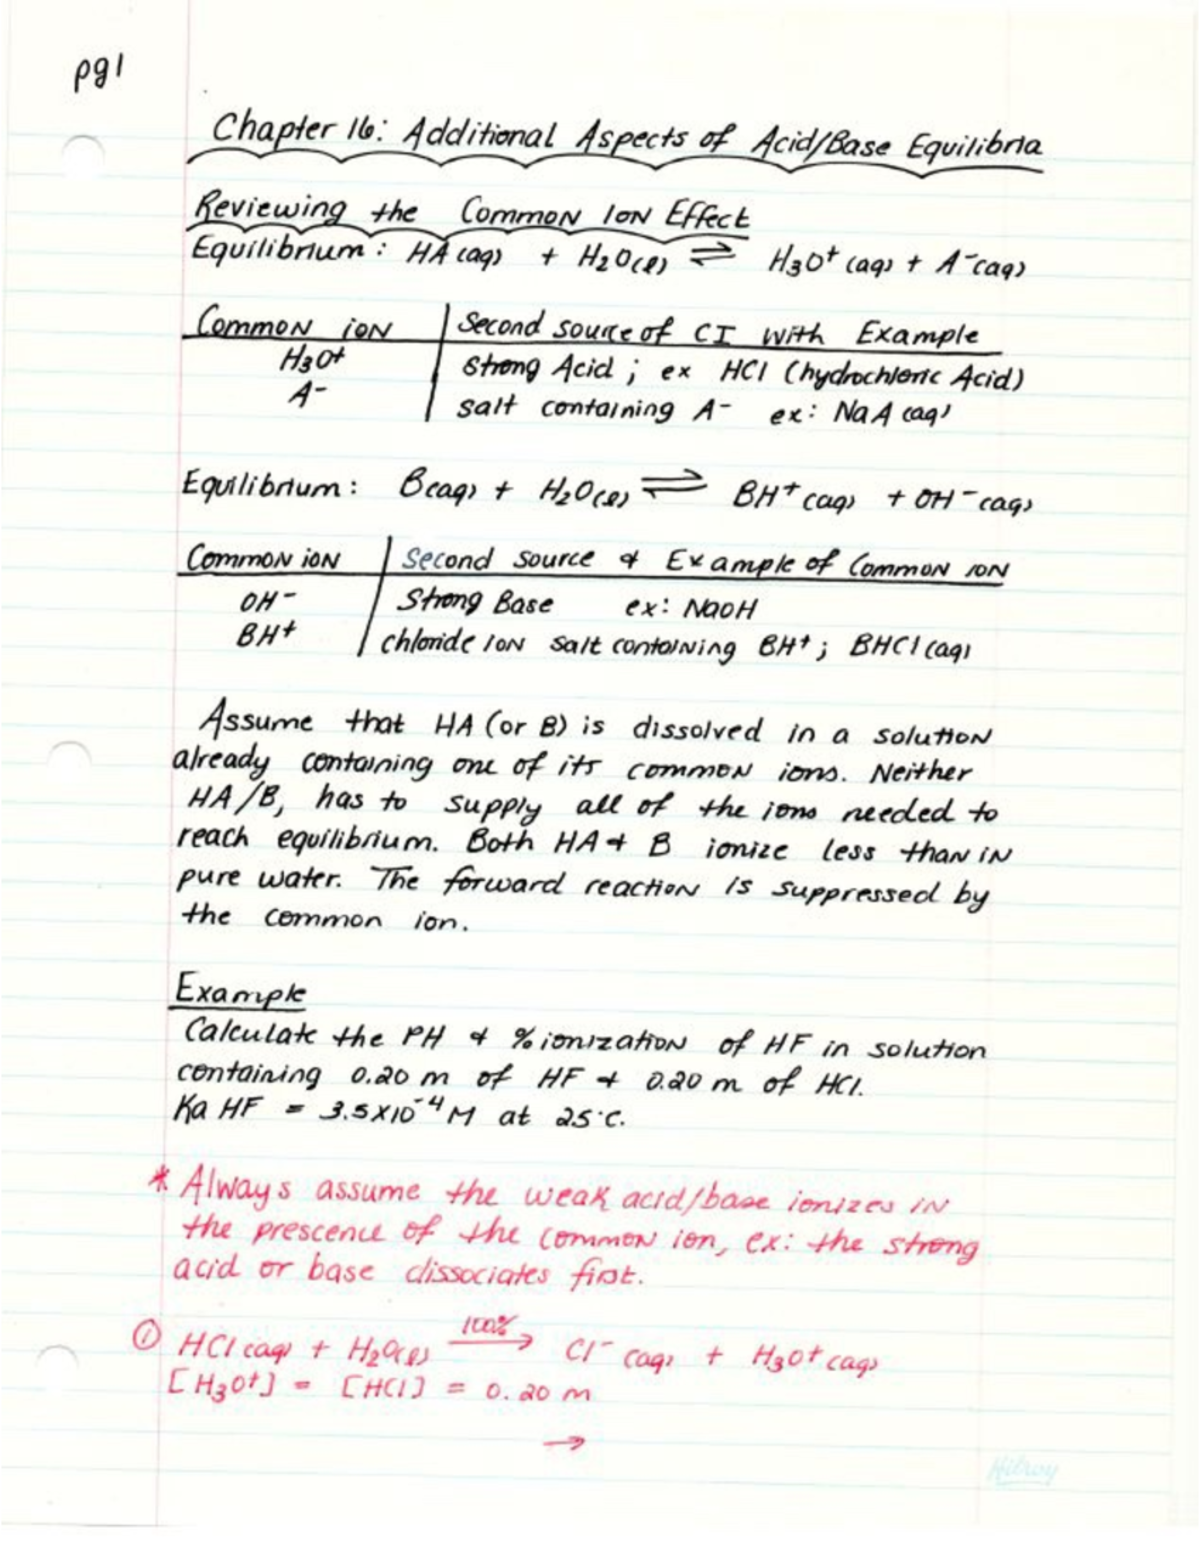 pg1
Chapter 16: Additional Aspects of Acid/Base Equilibria
Reviewing the Common Ion Effect
Equilibrium: HA(aq) + H2O(l) ⇌ H3O+(aq) + A-(aq)
Common ion | Second source of CI with Example
H3O+ | Strong Acid ; ex HCl (hydrochloric Acid)
A- | salt containing A- ex: NaA(aq)
Equilibrium: B(aq) + H2O(l) ⇌ BH+(aq) + OH-(aq)
Common ion | Second source & Example of Common ion
OH- | Strong Base ex: NaOH
BH+ | chloride ion salt containing BH+ ; BHCl(aq)
Assume that HA (or B) is dissolved in a solution
already containing one of its common ions. Neither
HA/B, has to supply all of the ions needed to
reach equilibrium. Both HA & B ionize less than in
pure water. The forward reaction is suppressed by
the common ion.
Example
Calculate the PH & % ionization of HF in solution
containing 0.20 m of HF & 0.20 m of HCl.
Ka HF = 3.5x10-4 M at 25°C.
* Always assume the weak acid/base ionizes in
the prescence of the common ion, ex: the strong
acid or base dissociates first.
① HCl(aq) + H2O(l) 100% → Cl-(aq) + H3O+(aq)
[H3O+] = [HCl] = 0.20 m
→
Hilroy